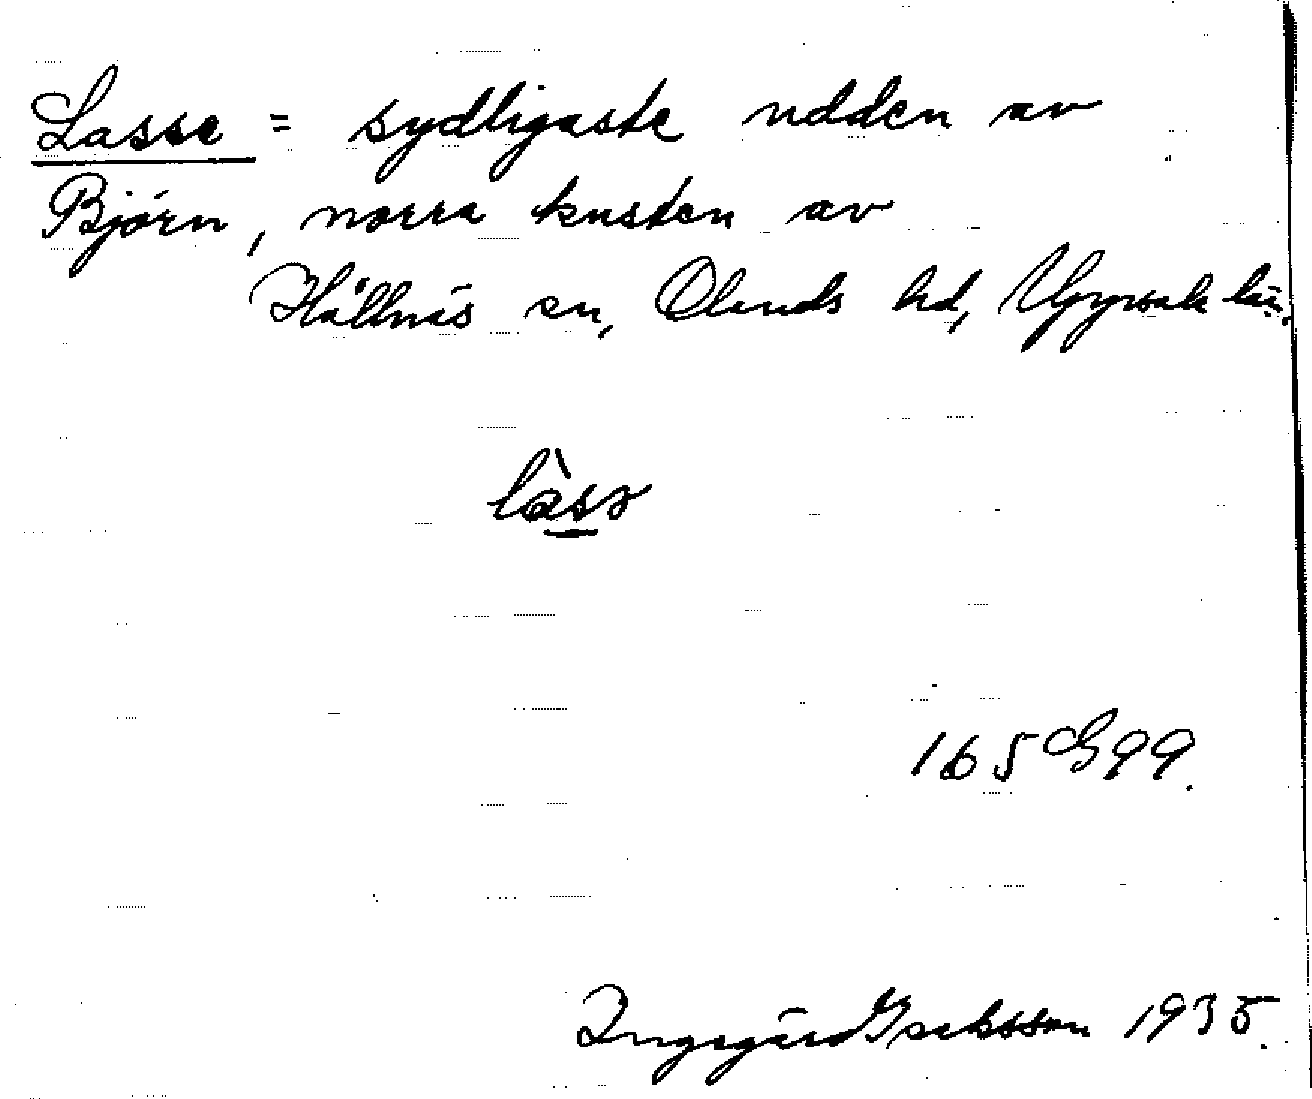 Lasse = sydligaste udden av
Björn, norra kusten av
Hållnäs sn, Olands hd, Uppsala län.
165 G 99.
Ingegärd Isaksson 1935.